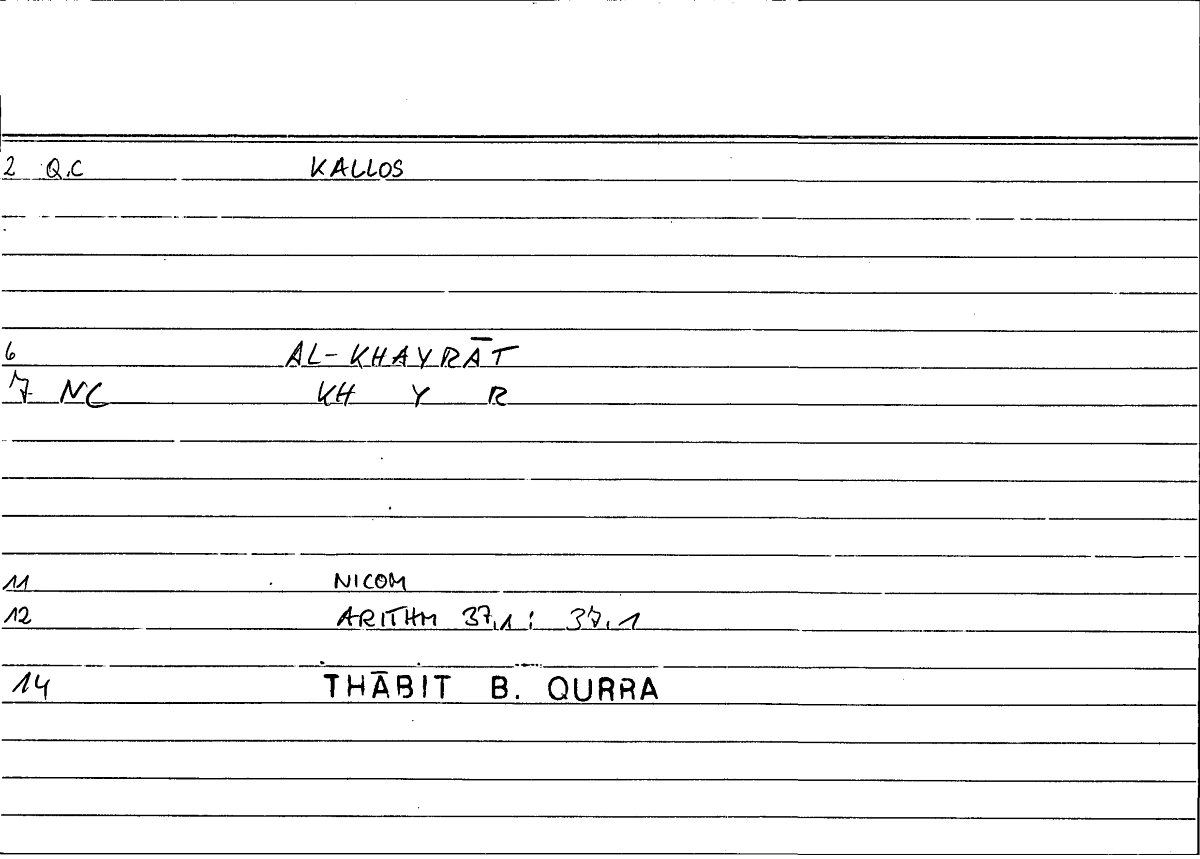 2 Q.C KALLOS
6 AL-KHAYRĀT
7 NC KH Y R
11 NICOM
12 ARITHM 37,1 : 37,1
14 THĀBIT B. QURRA